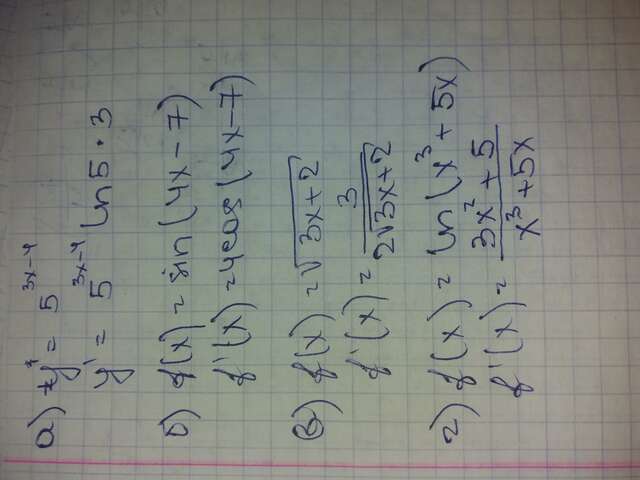 а) y = 5^{3x-4}
y' = 5^{3x-4} ln5 · 3
б) f(x) = sin(4x-7)
f'(x) = 4cos(4x-7)
в) f(x) = √(3x+2)
f'(x) = 3/(2√(3x+2))
г) f(x) = ln(x³+5x)
f'(x) = (3x²+5)/(x³+5x)